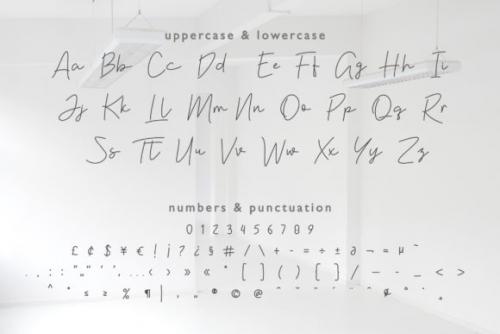 uppercase & lowercase
Aa Bb Cc Dd Ee Ff Gg Hh Ii
Jj Kk Ll Mm Nn Oo Pp Qq Rr
Ss Tt Uu Vv Ww Xx Yy Zz
numbers & punctuation
0 1 2 3 4 5 6 7 8 9
£ ¢ $ ¥ € ! ¡ ? ¿ § # / \ + - = ÷ ± ∂ ¬ ≈ µ ~
. , : ; " " ' ' , ... ‹ › » « • * [ ] ( ) { } / — - _ < >
^ ° ≤ ≥ % ¶ | , „ ® © @